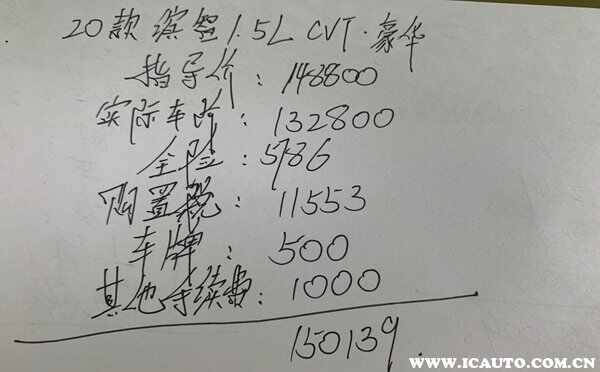 20款 缤智 1.5L CVT·豪华
指导价：148800
实际车价：132800
全险：5786
购置税：11553
车牌：500
其他手续费：1000
150139
爱卡汽车网
WWW.ICAUTO.COM.CN